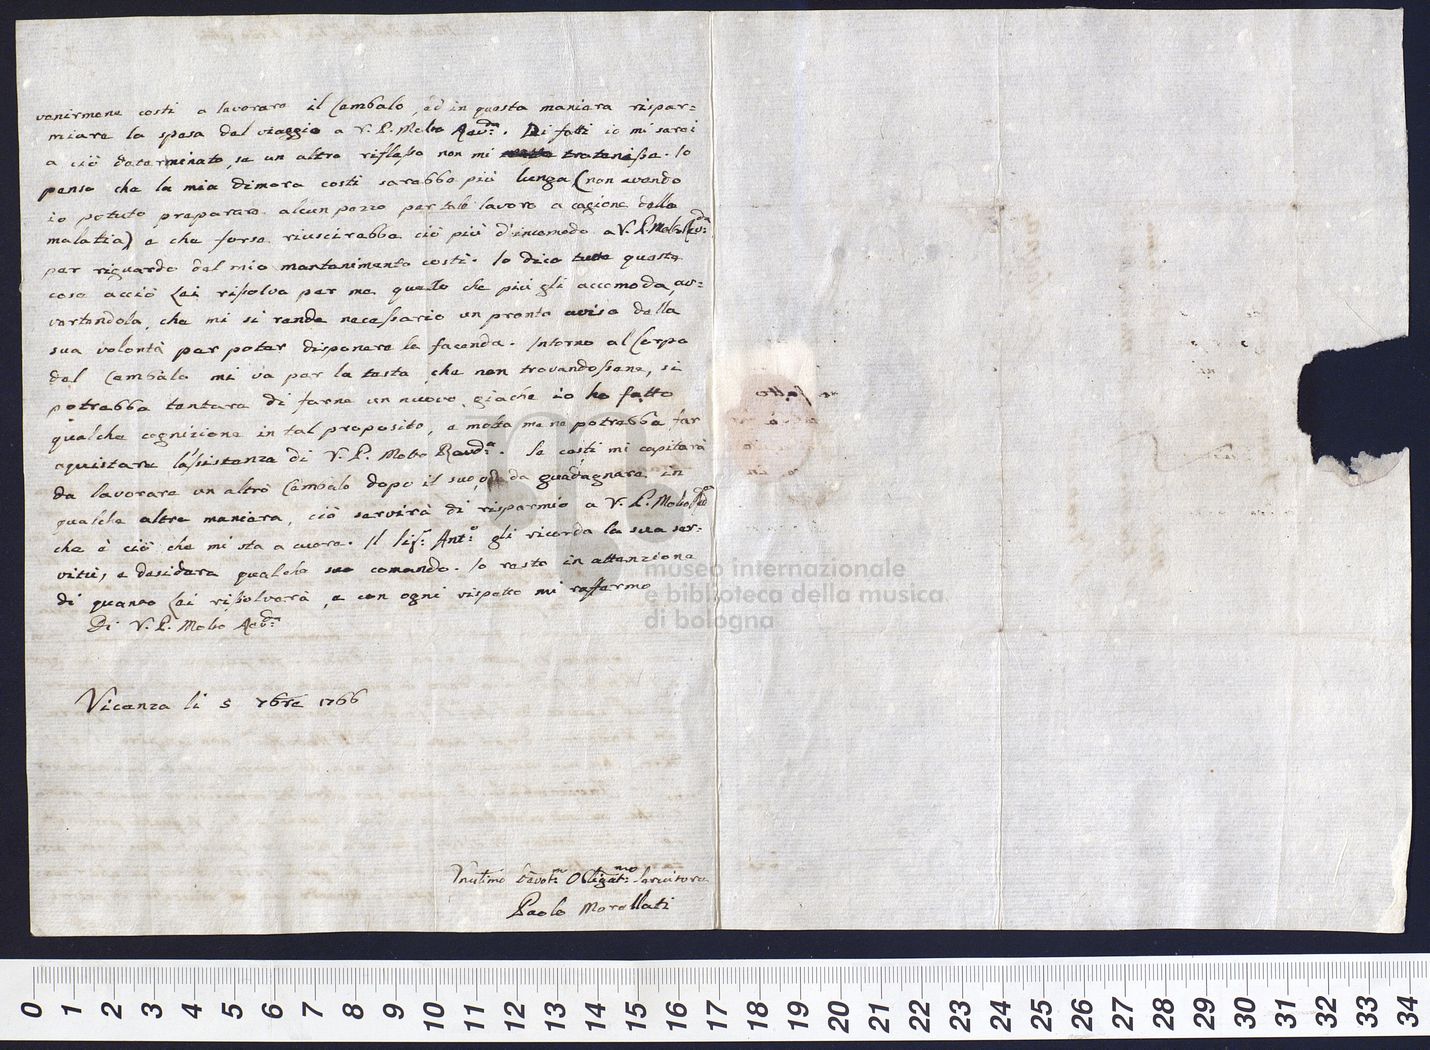 venirmene costi a lavorare il Cembalo, ed in questa maniera rispar=
miare la spesa del viaggio a V. P. Molto Revda. Di fatti io mi sarei
a ciò determinato, se un altro riflesso non mi tratenisse. Io
penso che la mia dimora costi sarebbe più lunga (non avendo
io potuto preparare alcun pezzo per tale lavoro a cagione della
malatia) e che forse riuscirebbe ciò più d'incomodo a V. P. Molto Revda:
per riguardo del mio mantenimento costi. Io dico tutte queste
cose acciò Lei risolva per me quello che più gli accomoda, av=
vertendola, che mi si rende necessario un pronto aviso della
sua volontà per poter disponere le facende. Intorno al Corpo
del Cembalo mi va per la testa, che non trovandossene, si
potrebbe tentare di farne un nuovo, giachè io ho fatto
qualche cognizione in tal proposito, e molta me ne potrebbe far
aquistare l'assistenza di V. P. Molto Revda. Se costi mi capitarà
da lavorare un altro Cembalo dopo il suo, o da guadagnare in
qualche altra maniera, ciò servirà di risparmio a V. P. Molto Revda
che è ciò che mi sta a cuore. Il Sigr: Anto: gli ricorda la sua ser=
vitù, e desidera qualche suo comando. Io resto in attenzione
di quanto Lei risolverà, e con ogni rispetto mi raffermo
Di V. P. Molto Revda:
Vicenza li 5 7bre 1766
Umilmo Devotmo Obligatmo Servitore
Paolo Morellati
museo internazionale
e biblioteca della musica
di bologna
0 1 2 3 4 5 6 7 8 9 10 11 12 13 14 15 16 17 18 19 20 21 22 23 24 25 26 27 28 29 30 31 32 33 34